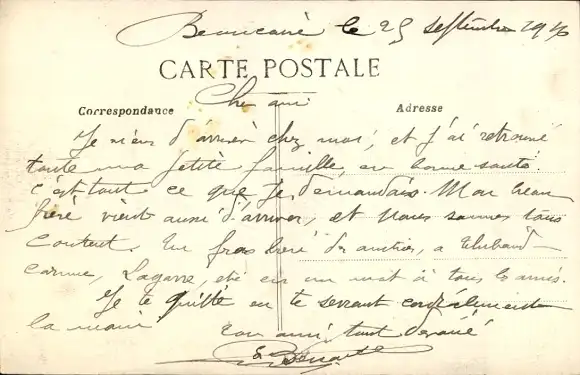 Beaucaire le 25 septembre 1916
CARTE POSTALE
Cher ami
Correspondance
Adresse
Je viens d'arriver chez moi, et j'ai retrouvé
toute ma petite famille, en bonne santé.
c'est tout ce que je demandais. Mon beau
frère vient aussi d'arriver, et nous sommes tous
contents. Un gros de, a
Lagarre, etc en un mot à tous les amis.
Je te quitte en te serrant cordialement
la main ton ami tout dévoué